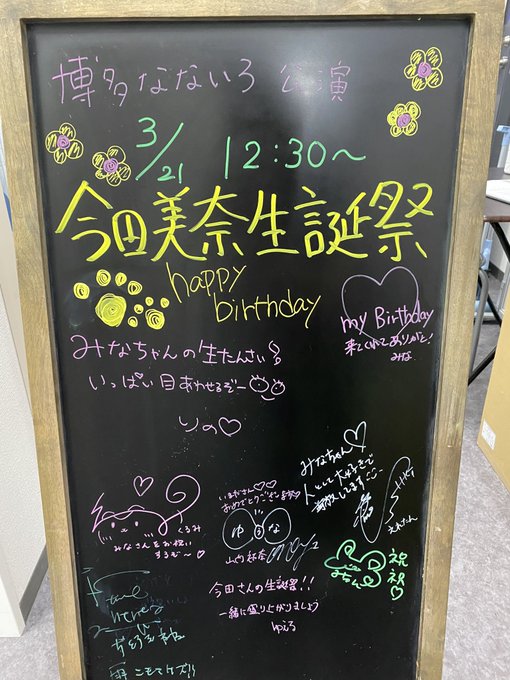 博多なないろ 公演
3/21 12:30～
今田美奈生誕祭
happy
birthday
my Birthday
来てくれてありがと!
みな
みなちゃんの生たんさい
いっぱい目あわせるぞー
りの♡
みなちゃん♡
人として大好きで
くるみ
みなさんをお祝い
するぞ〜♡
いまださん♡♡
おめでとうございます
ゆうな
HKT
みちゃん
祝
祝
♡
今田さんの生誕祭!!
一緒に盛り上がりましょう